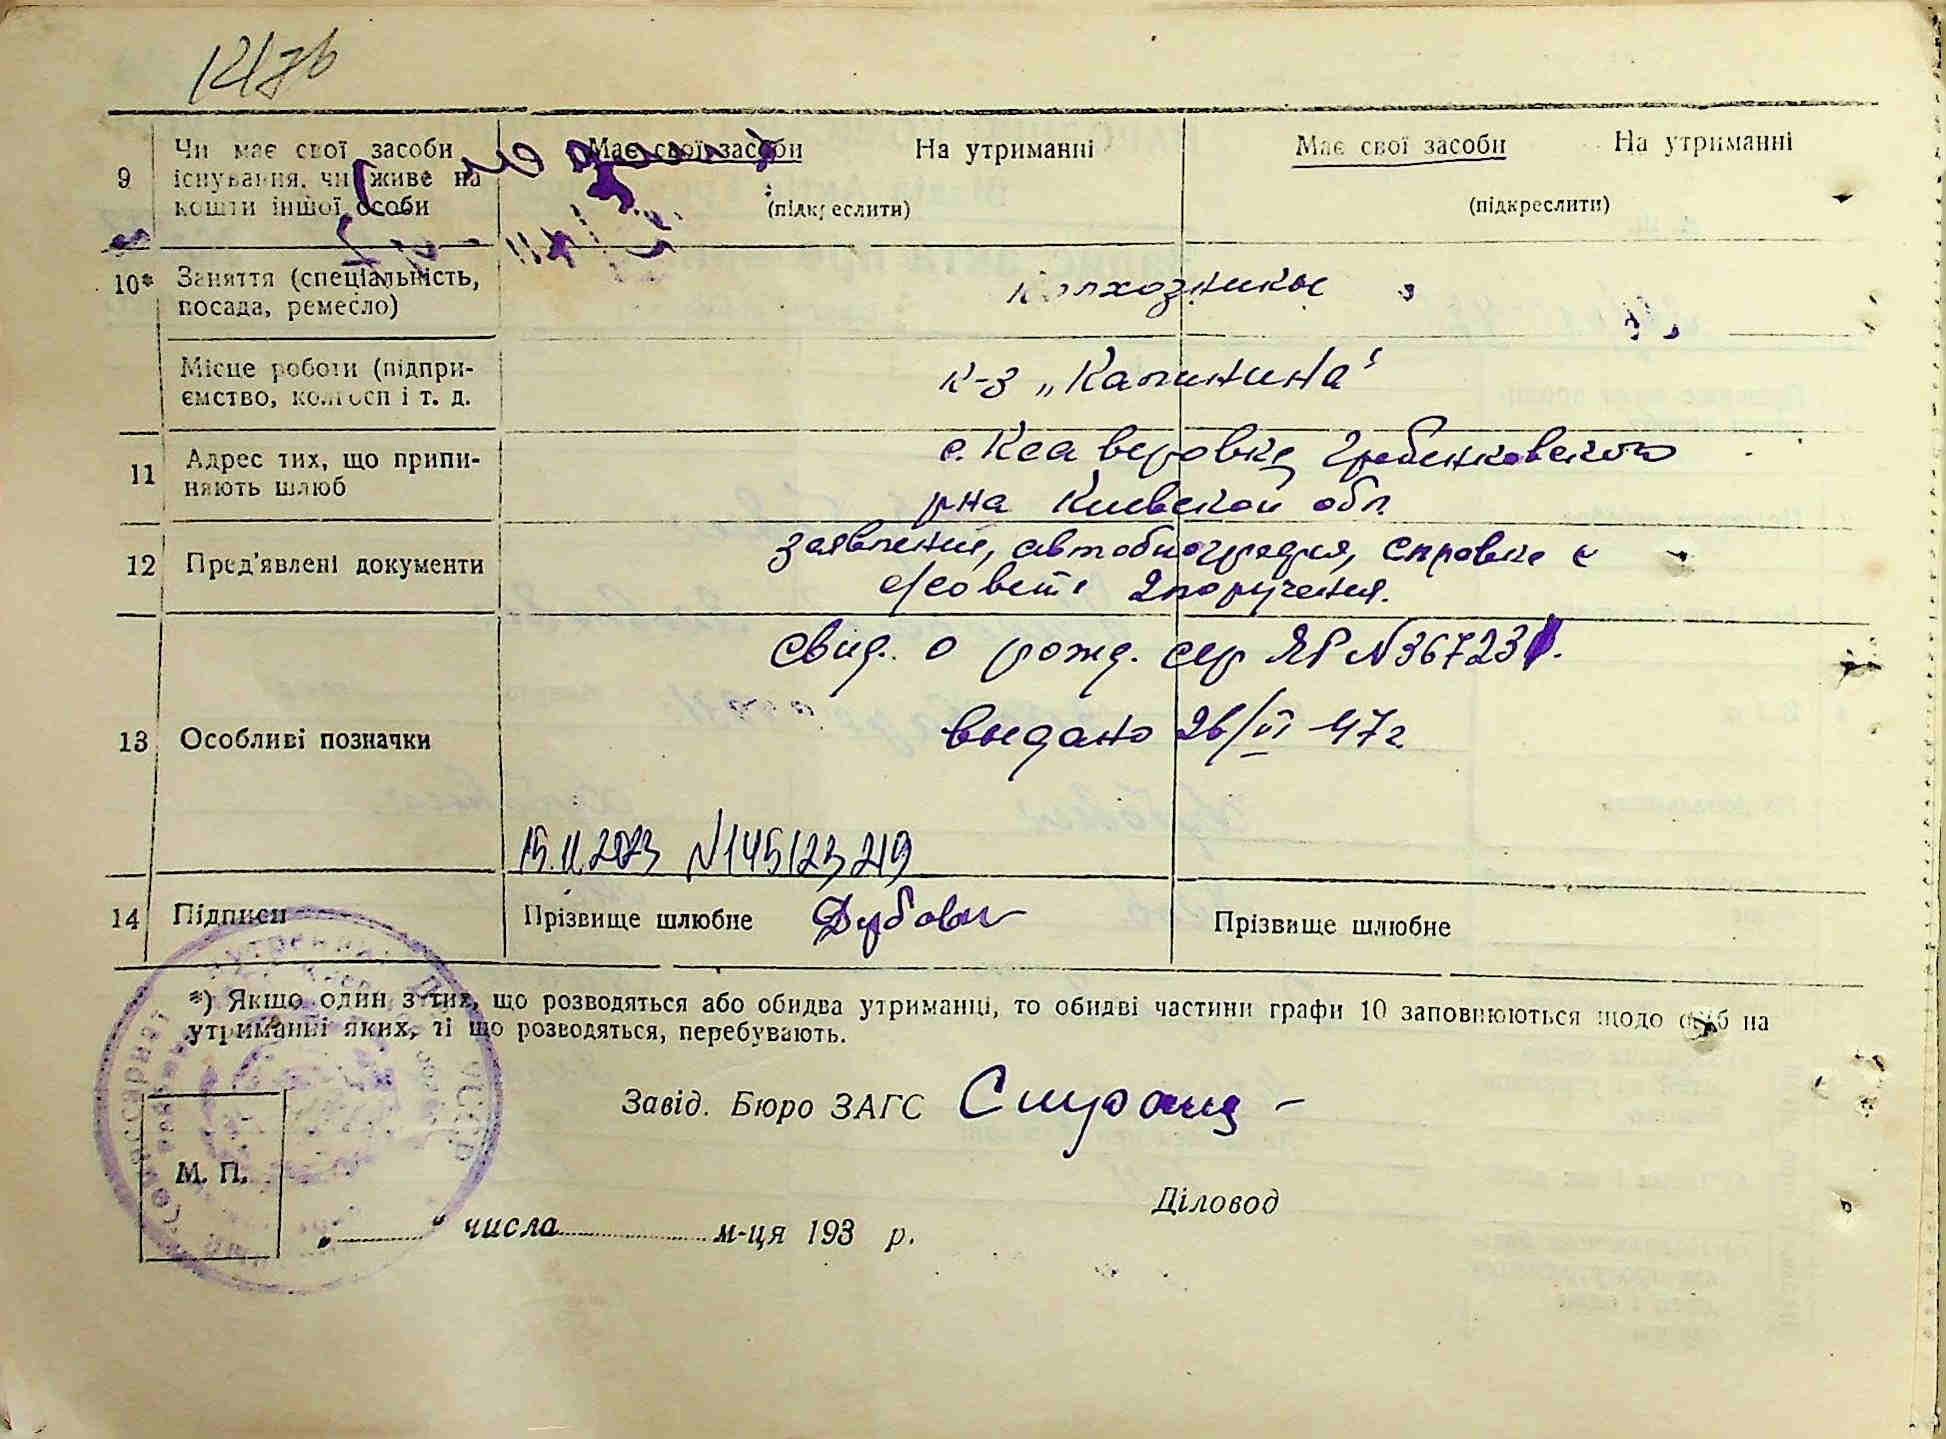 9
Чи має свої засоби
існування, чи живе на
кошти іншої особи
Має свої засоби На утриманні
(підкреслити)
Має свої засоби На утриманні
(підкреслити)
10*
Заняття (спеціальність,
посада, ремесло)
Колхозники
Місце роботи (підпри-
ємство, колгосп і т. д.
к-з „Калинина"
11
Адрес тих, що припи-
няють шлюб
с. Ксаверовка Гребенковского
рна Киевской обл.
12
Пред'явлені документи
заявление, автобиография, справка с
с/совета 2 поручения.
13
Особливі позначки
свид. о рожд. сер ЯР N 367231.
выдано 26/VI 47 г
15.11.2023 N145/23,219
14
Підписи
Прізвище шлюбне
Прізвище шлюбне
*) Якщо один з тих, що розводяться або обидва утриманці, то обидві частини графи 10 заповнюються щодо осіб на
утриманні яких, ті що розводяться, перебувають.
Завід. Бюро ЗАГС
М. П.
Діловод
„ " числа м-ця 193 р.